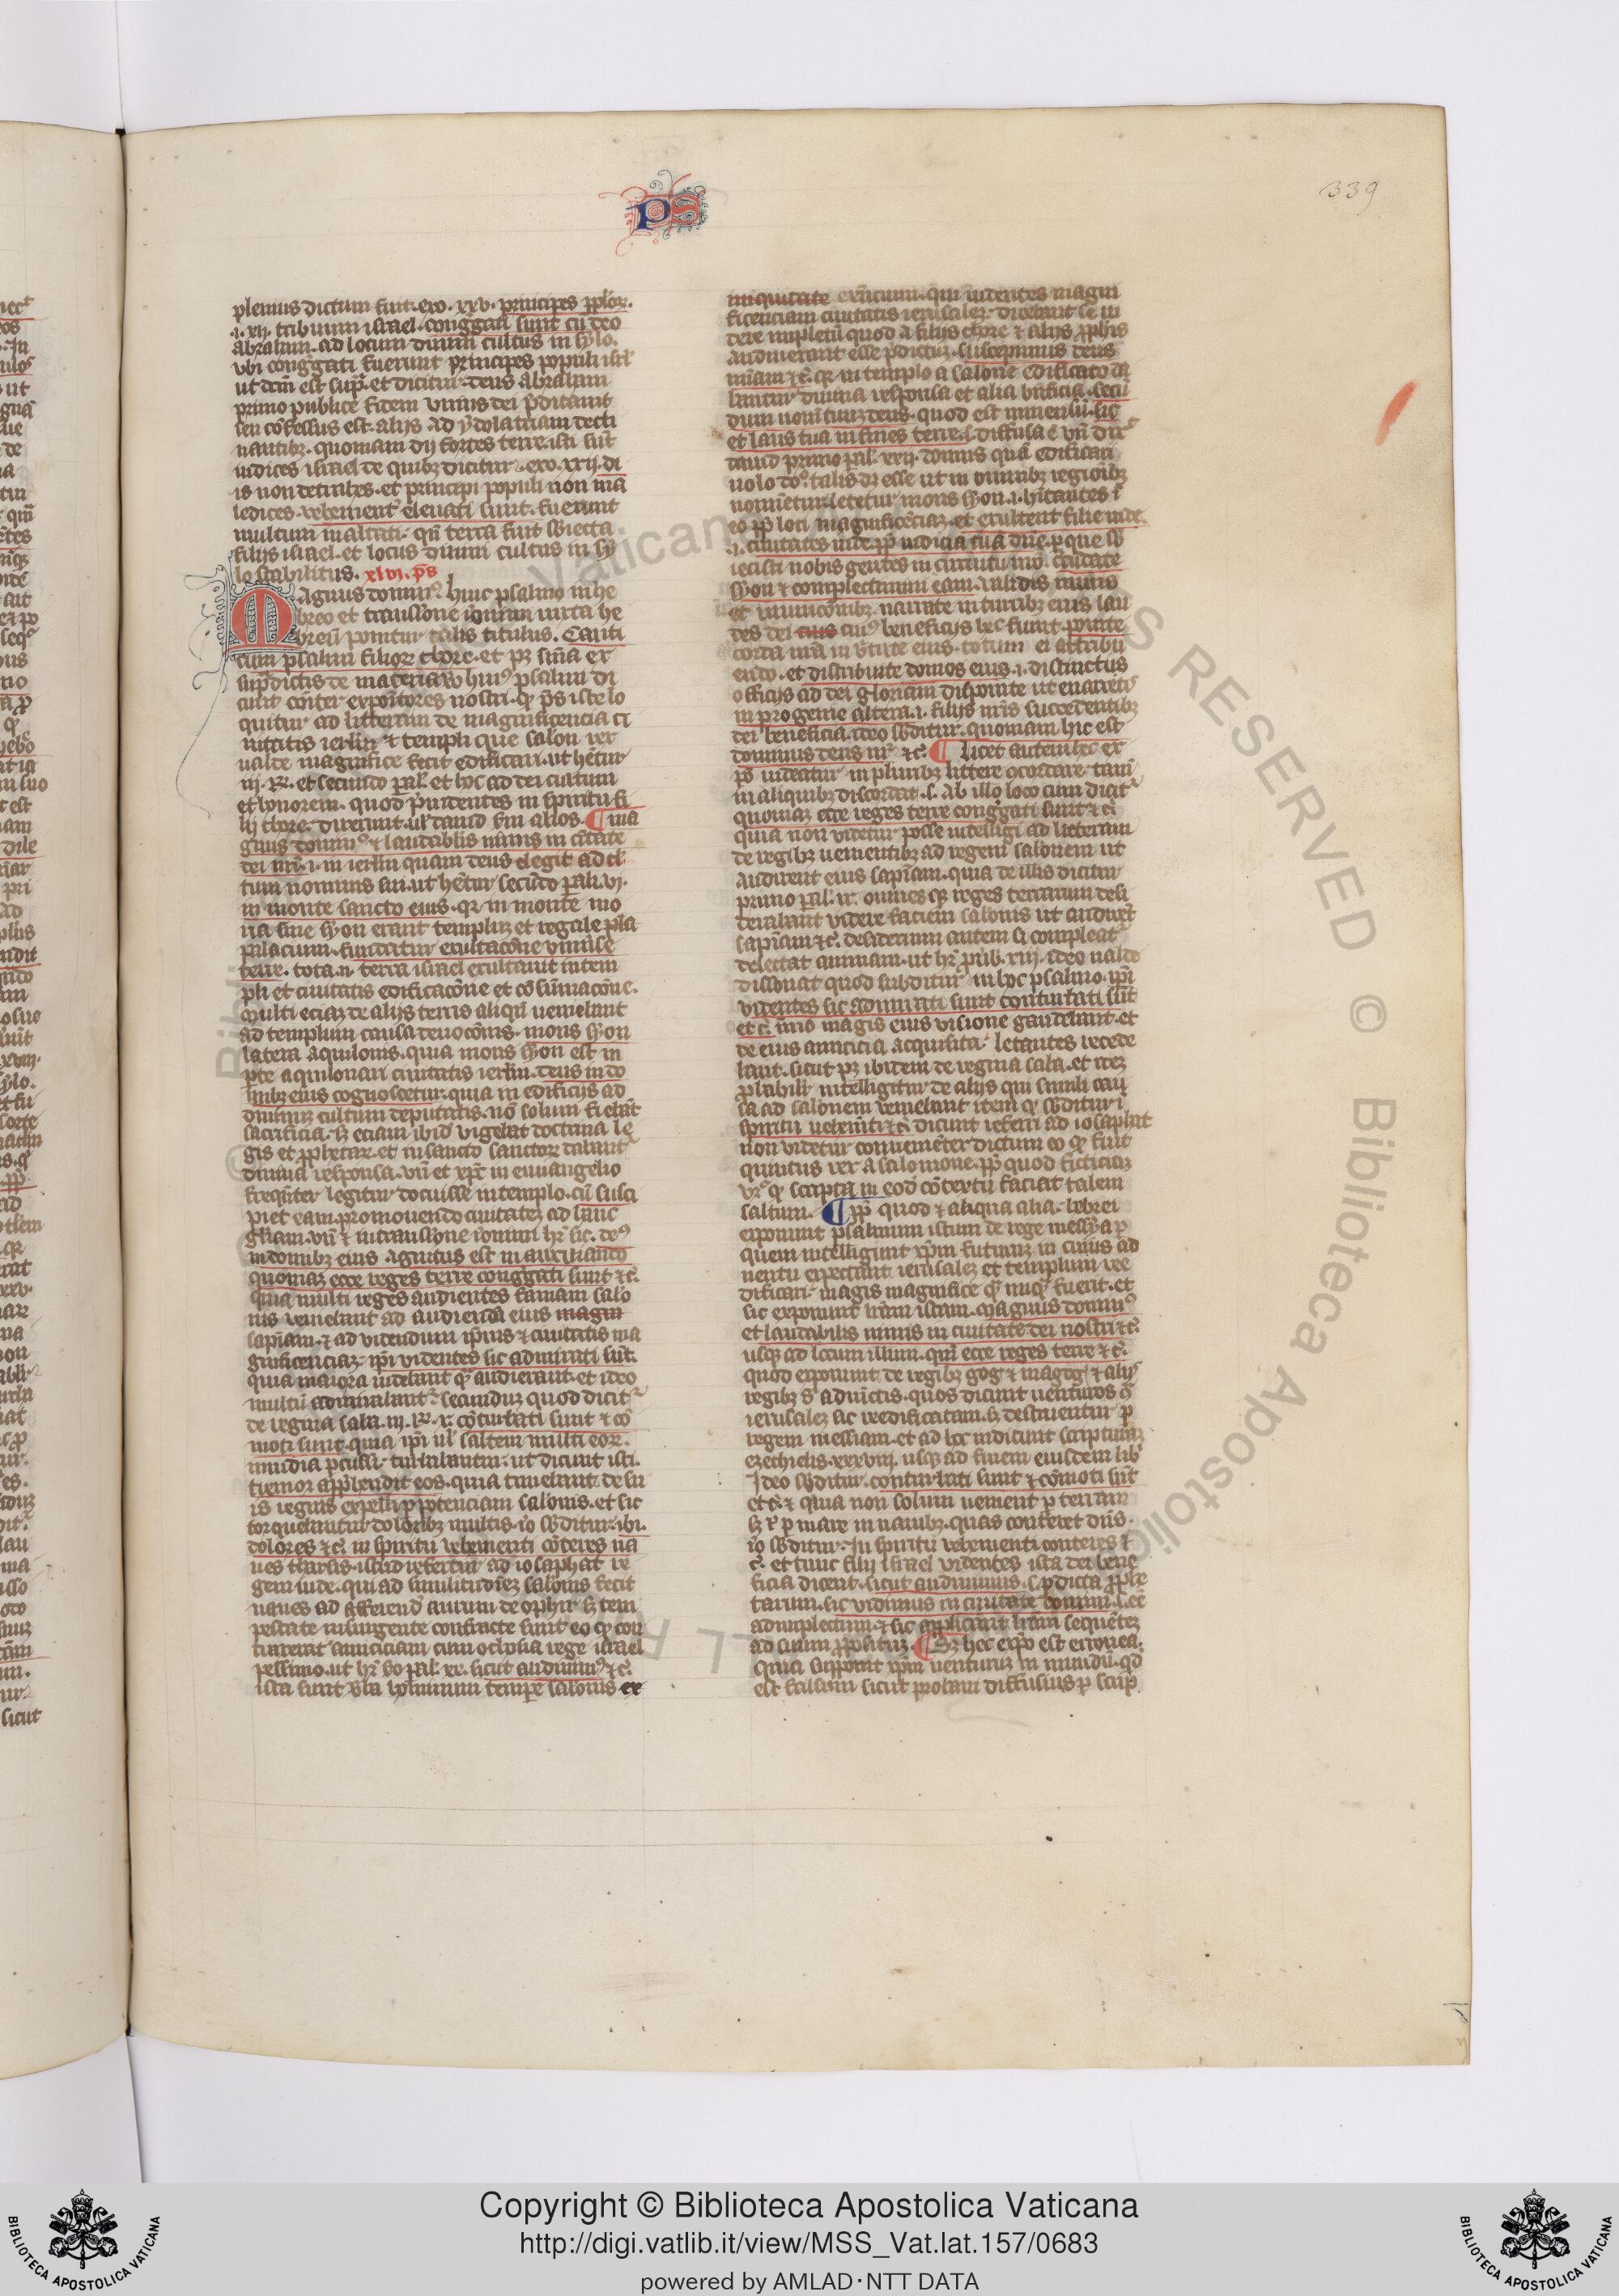 ps
339
plenius dictum fuit. exo. xxv. principes pplor.
.i. xii. tribuum israel. conggati sunt cu deo
abraham. ad locum diuini cultus in sylo.
vbi conggati fuerunt principes populi isrl
ut dcm est supra. et dicitur. deus abraham
primo publice fidem vnius dei predicauit
seu confessus est. alijs ad ydolatriam decli
nantibz. quoniam dij fortes terre. isti sut
iudices israel de quibz dicitur. exo. xxij. di
is non detrahes. et principi populi non ma
ledices. vehementer eleuati sunt. fuerunt
multum in altati. qn terra fuit sbiecta
filijs israel. et locus diuini cultus in sy
lo stabilitus. xlvij. ps
Magnus domin9 huic psalmo in he
breo et translacione ieronimi iuxta he
breu ponitur talis titulus. Canti
cum psalmi filior chore. et pz sina ex
supradictis de materia vo hui9 psalmi di
cunt conter expositores nostri. q ps iste lo
quitur ad litteram de magnificencia ci
uitatis ierlm et templi que salon rex
ualde magnifice fecit edificari. ut hetur
iij. R. et secundo pal. et hoc ad dei cultum
et honorem. quod preuidentes in spiritu fi
lij chore. dixerunt. ul dauid scm alios. ma
gnus domin9 et laudabilis nimis in ciuitate
dei nri. i. in ierlm quam deus elegit ad cl
tum nominis sui. ut hetur secundo pali. vi.
in monte sancto eius. qr in monte mo
ria siue syon erant templum et regale pla
palacium. fundatur exultacone vniuse
terre. tota. n. terra israel exultauit in tem
pli et ciuitatis edificacone et consumacone.
Multi eciam de alijs terris aliqn veniebant
ad templum causa deuocionis. mons syon
latera aquilonis. quia mons syon est in
pte aquilonari ciuitatis ierlm. deus in do
mibz eius cognoscetur. quia in edificijs ad
diuinum cultum deputatis. non solum fiebant
sacrificia. sz eciam ibidem vigebat doctrina le
gis et prophetar. et in sancto sanctor dabantur
diuina responsa. vn et xpc in euuangelio
frequenter legitur docuisse in templo. cum susci
piet eam. promouendo ciuitatem ad hanc
gliam. vn et in translacione ieronimi hr sic. de9
in domibz eius agnitus est in auxiliando
quoniam ecce reges terre conggati sunt etc.
quia multi reges audientes famam salo
nis veniebant ad audienda eius magni
sapiam. et ad videndum ipius et ciuitatis ma
gnificenciam. ipi videntes sic admirati sunt.
quia maiora uidebant q audierant. et ideo
multu admirabantur. secundum quod dicitur
de regina saba. iij. R. x. conturbati sunt et co
moti sunt. quia ipi ul saltem multi eor.
inuidia pcussi turbabantur. ut dicunt isti.
tremor apprehendit eos. quia timebant de su
is regnis expelli pp potenciam salonis. et sic
torquebantur doloribz multis. io sbditur. ibi.
dolores etc. in spiritu vehementi conteres na
ues tharsis. istud refertur ad iosaphat re
gem iude. qui ad similitudinem salonis fecit
naues ad afferend aurum de ophir sz tem
pestate insurgente confracte sunt eo q con
traxerat amiciciam cum ochosia rege israel
pessimo. ut hr sco pal. xx. sicut audiuim9 etc.
ista sunt vba hominum tempore salonis ex
iniquitate exncium. qui uidentes magni
ficenciam ciuitatis ierusalem. dicebant se ui
dere impletu quod a filijs chore et alijs prophetis
audiuerant esse predictum. suscepimus deus
miam etc. qr in templo a salone edificato da
bantur diuina responsa et alia bnficia. secu
dum nomen tuum deus. quod est immensum. sic
et laus tua in fines terre. s. diffusa e vn dixit
dauid primo pal. xxij. domus quam edificari
uolo do. talis dz esse ut in omnibz regionibz
nominetur. letetur mons syon. i. habitantes i
eo pp loci magnificenciam. et exultent filie iude.
.i. ciuitates iude. pp iudicia tua dne. p que sb
iecisti nobis gentes in circuitu nro. circumdate
syon et complectimini eam. ualidis muris
et municionibz. narrate in turribz eius lau
des dei eius cui9 beneficijs hec sunt. ponite
corda ura in virtute eius. totum ei attribu
endo. et distribuite domos eius. i. distinctis
officijs ad dei gloriam disponite ut enarretis
in progenie altera. i. filijs uris succedentibz
dei beneficia. ideo sbditur. quoniam hic est
dominus deus nr etc. Licet autem hec ex
po uideatur in pluribz littere concordare. tamen
in aliquibz discordat. s. ab illo loco cum dicitur
quoniam ecce reges terre conggati sunt etc.
quia non videtur posse intelligi ad litteram
de regibz uenientibz ad regem salonem ut
audirent eius sapiam. quia de illis dicitur
primo pal. ix. omnes qz reges terrarum desi
derabant videre faciem salonis ut audirent
sapiam etc. desiderium autem si compleatur
delectat animam. ut hr prouerb. xiij. ideo ualde
dissonat quod subditur in hoc psalmo. ipi
videntes sic admirati sunt conturbati sunt
etc. imo magis eius visione gaudebant. et
de eius amicicia acquisita. letantes recede
bant. sicut pz ibidem de regina saba. et idem
probabiliter intelligitur de alijs qui simili cau
sa ad salonem veniebant item q sbditur i
spiritu uehementi etc. dicunt referri ad iosaphat
non videtur conuenienter dictum eo q fuit
quintus rex a salomone. pp quod ficticium
vr q scripta in eodem contextu faciat talem
saltum. pp quod et aliqua alia. hebrei
exponunt psalmum istum de rege messya p
quem intelligunt xpm futurum in cuius ad
uentu expectant ierusalem et templum ree
dificari. magis magnifice q umq fuerit. et
sic exponunt lram istam. Magnus dominus
et laudabilis nimis in ciuitate dei nostri etc.
usqz ad locum illum. qm ecce reges terre etc.
quod exponunt de regibz gog et magog et alijs
regibz s adunctis. quos dicunt uenturos contra
ierusalem sic reedificatam. sz destruentur p
regem messiam. et ad hoc inducunt scripturam
ezechielis. xxxviij. usqz ad finem eiusdem libri
Ideo sbditur. conturbati sunt et comoti sunt
etc. et quia non solum uenient p terram
sz et p mare in nauibz. quas conteret dns.
io sbditur. In spiritu vehementi conteres et
c. et tunc filij israel videntes ista dei bene
ficia dicent. sicut audiuimus. s. predicta prophe
tarum. sic vidimus in ciuitate domini. s. ee
adimpletum. et sic applicant lram sequentem
ad suum propositum. Sz hec expo est erronea.
quia supponit xpm uenturum in mundu. qd
est falsum sicut probaui diffusius p scrip
Copyright © Biblioteca Apostolica Vaticana
http://digi.vatlib.it/view/MSS_Vat.lat.157/0683
powered by AMLAD·NTT DATA
BIBLIOTECA APOSTOLICA VATICANA
BIBLIOTECA APOSTOLICA VATICANA